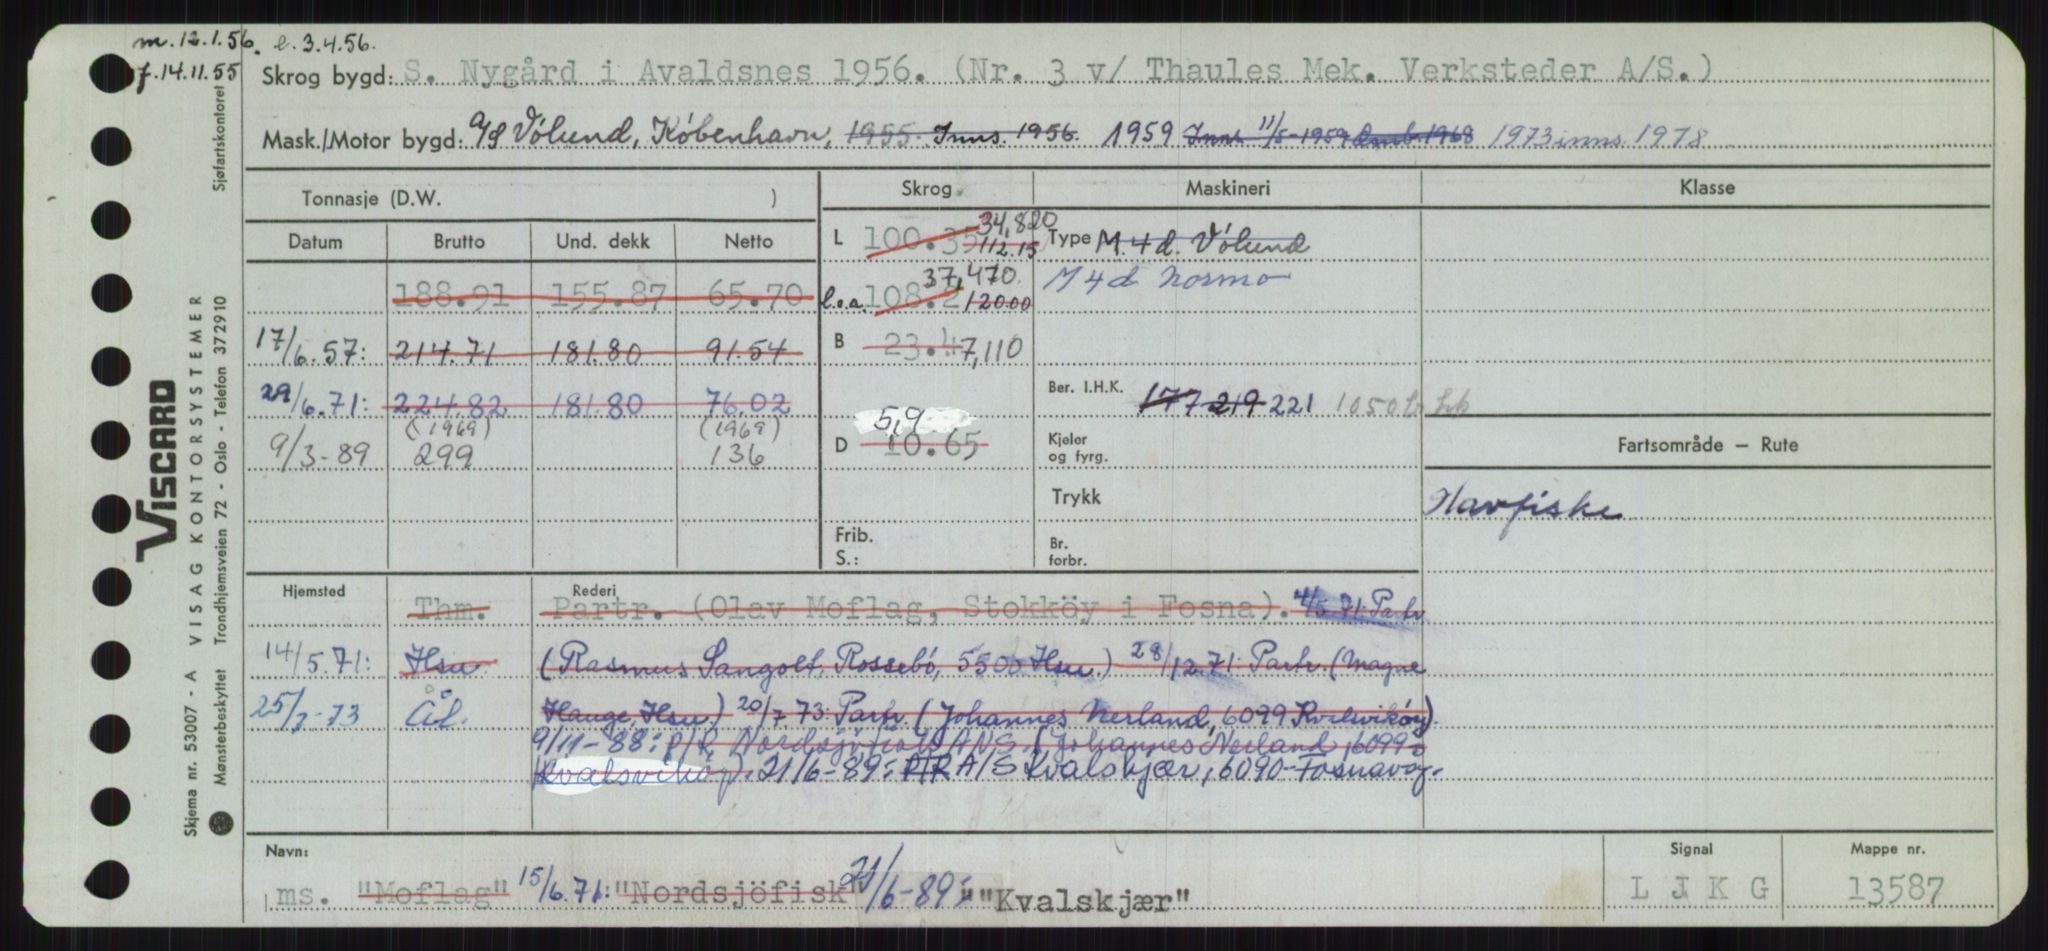 m. 12.1.56. l. 3.4.56.
f. 14.11.55
Skrog bygd: S. Nygård i Avaldsnes 1956. (Nr. 3 v/ Thaules Mek. Verksteder A/S.)
Mask./Motor bygd: A/S Völund, København, 1955. Inns. 1956. 1959 Inns 11/5-1959 Omb. 1968 1973 inns. 1978
Tonnasje (D.W. )
Skrog.
Maskineri
Klasse
Datum Brutto Und. dekk Netto
L 100.35 112.15 34,820
Type M. 4 d. Völund
188.91 155.87 65.70
l.o.a. 108.2 120.00 37,470
M 4 d Normo
17/6.57: 214.71 181.80 91.54
B 23.4 7,110
29/6.71: 224.82 181.80 76.02
Ber. I.H.K. 177 219 221 1050
(1969) (1969)
9/3-89 299 136
D 10.65 5,9
Kjeler og fyrg.
Fartsområde — Rute
Trykk
Havfiske
Frib.
S.:
Br. forbr.
Hjemsted Rederi
Thm. Partr. (Olav Moflag, Stokköy i Fosna). 4/5.71: Partr
14/5.71: Hsu. (Rasmus Sangolt, Rossebö, 5500 Hsu.) 28/12.71: Partr. (Magne
25/7-73 Ål. Hauge, Hsu.) 20/7 73: Partr. (Johannes Nerland, 6099 Kvalsvikøy).
9/11-88: P/R Nordsjöfisk ANS. (Johannes Nerland, 6099-
Kvalsvikøy). 21/6-89: PR A/S Kvalskjær, 6090-Fosnavåg.
Navn:
Signal
Mappe nr.
ms. "Moflag" 15/6.71: "Nordsjöfisk" 21/6-89: "Kvalskjær"
L J K G
13587
VISCARD
VISAG KONTORSYSTEMER
Skjema nr. 53007 - A
Mønsterbeskyttet
Trondhjemsveien 72 - Oslo - Telefon 372910
Sjøfartskontoret